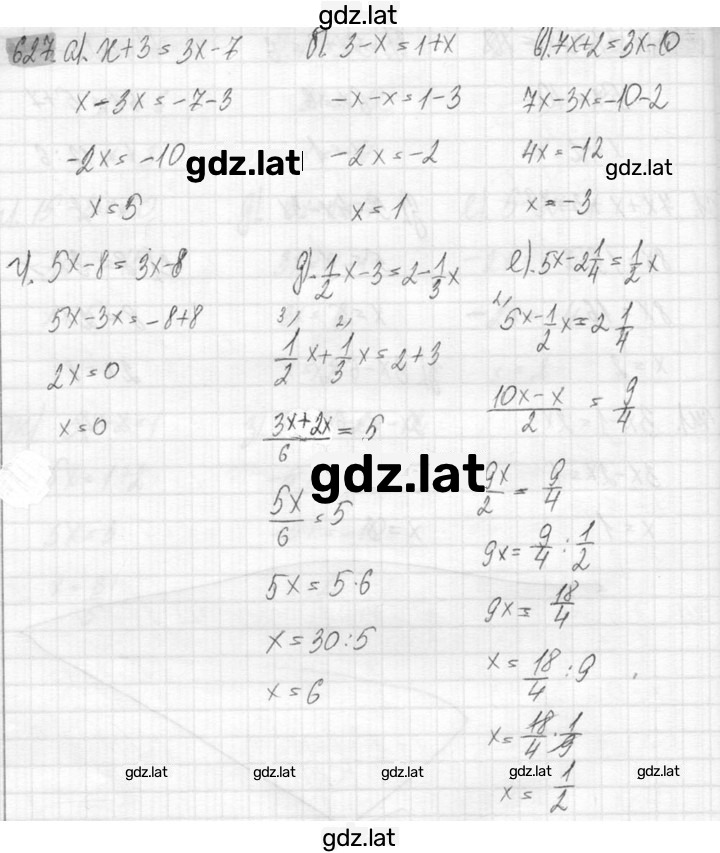 gdz.lat
627. а). x+3=3x-7
x-3x=-7-3
-2x=-10
gdz.lat
x=5
б). 3-x=1+x
-x-x=1-3
-2x=-2
x=1
в). 7x+2=3x-10
7x-3x=-10-2
4x=-12
gdz.lat
x=-3
г). 5x-8=3x-8
5x-3x=-8+8
2x=0
x=0
д). -1/2x-3=2-1/3x
3) 2)
1/2x+1/3x=2+3
(3x+2x)/6=5
gdz.lat
5x/6=5
5x=5·6
x=30:5
x=6
е). 5x-2 1/4=1/2x
2)
5x-1/2x=2 1/4
(10x-x)/2=9/4
9x/2=9/4
9x=9/4:1/2
9x=18/4
x=18/4:9
x=18/4·1/9
x=1/2
gdz.lat gdz.lat gdz.lat gdz.lat gdz.lat
gdz.lat